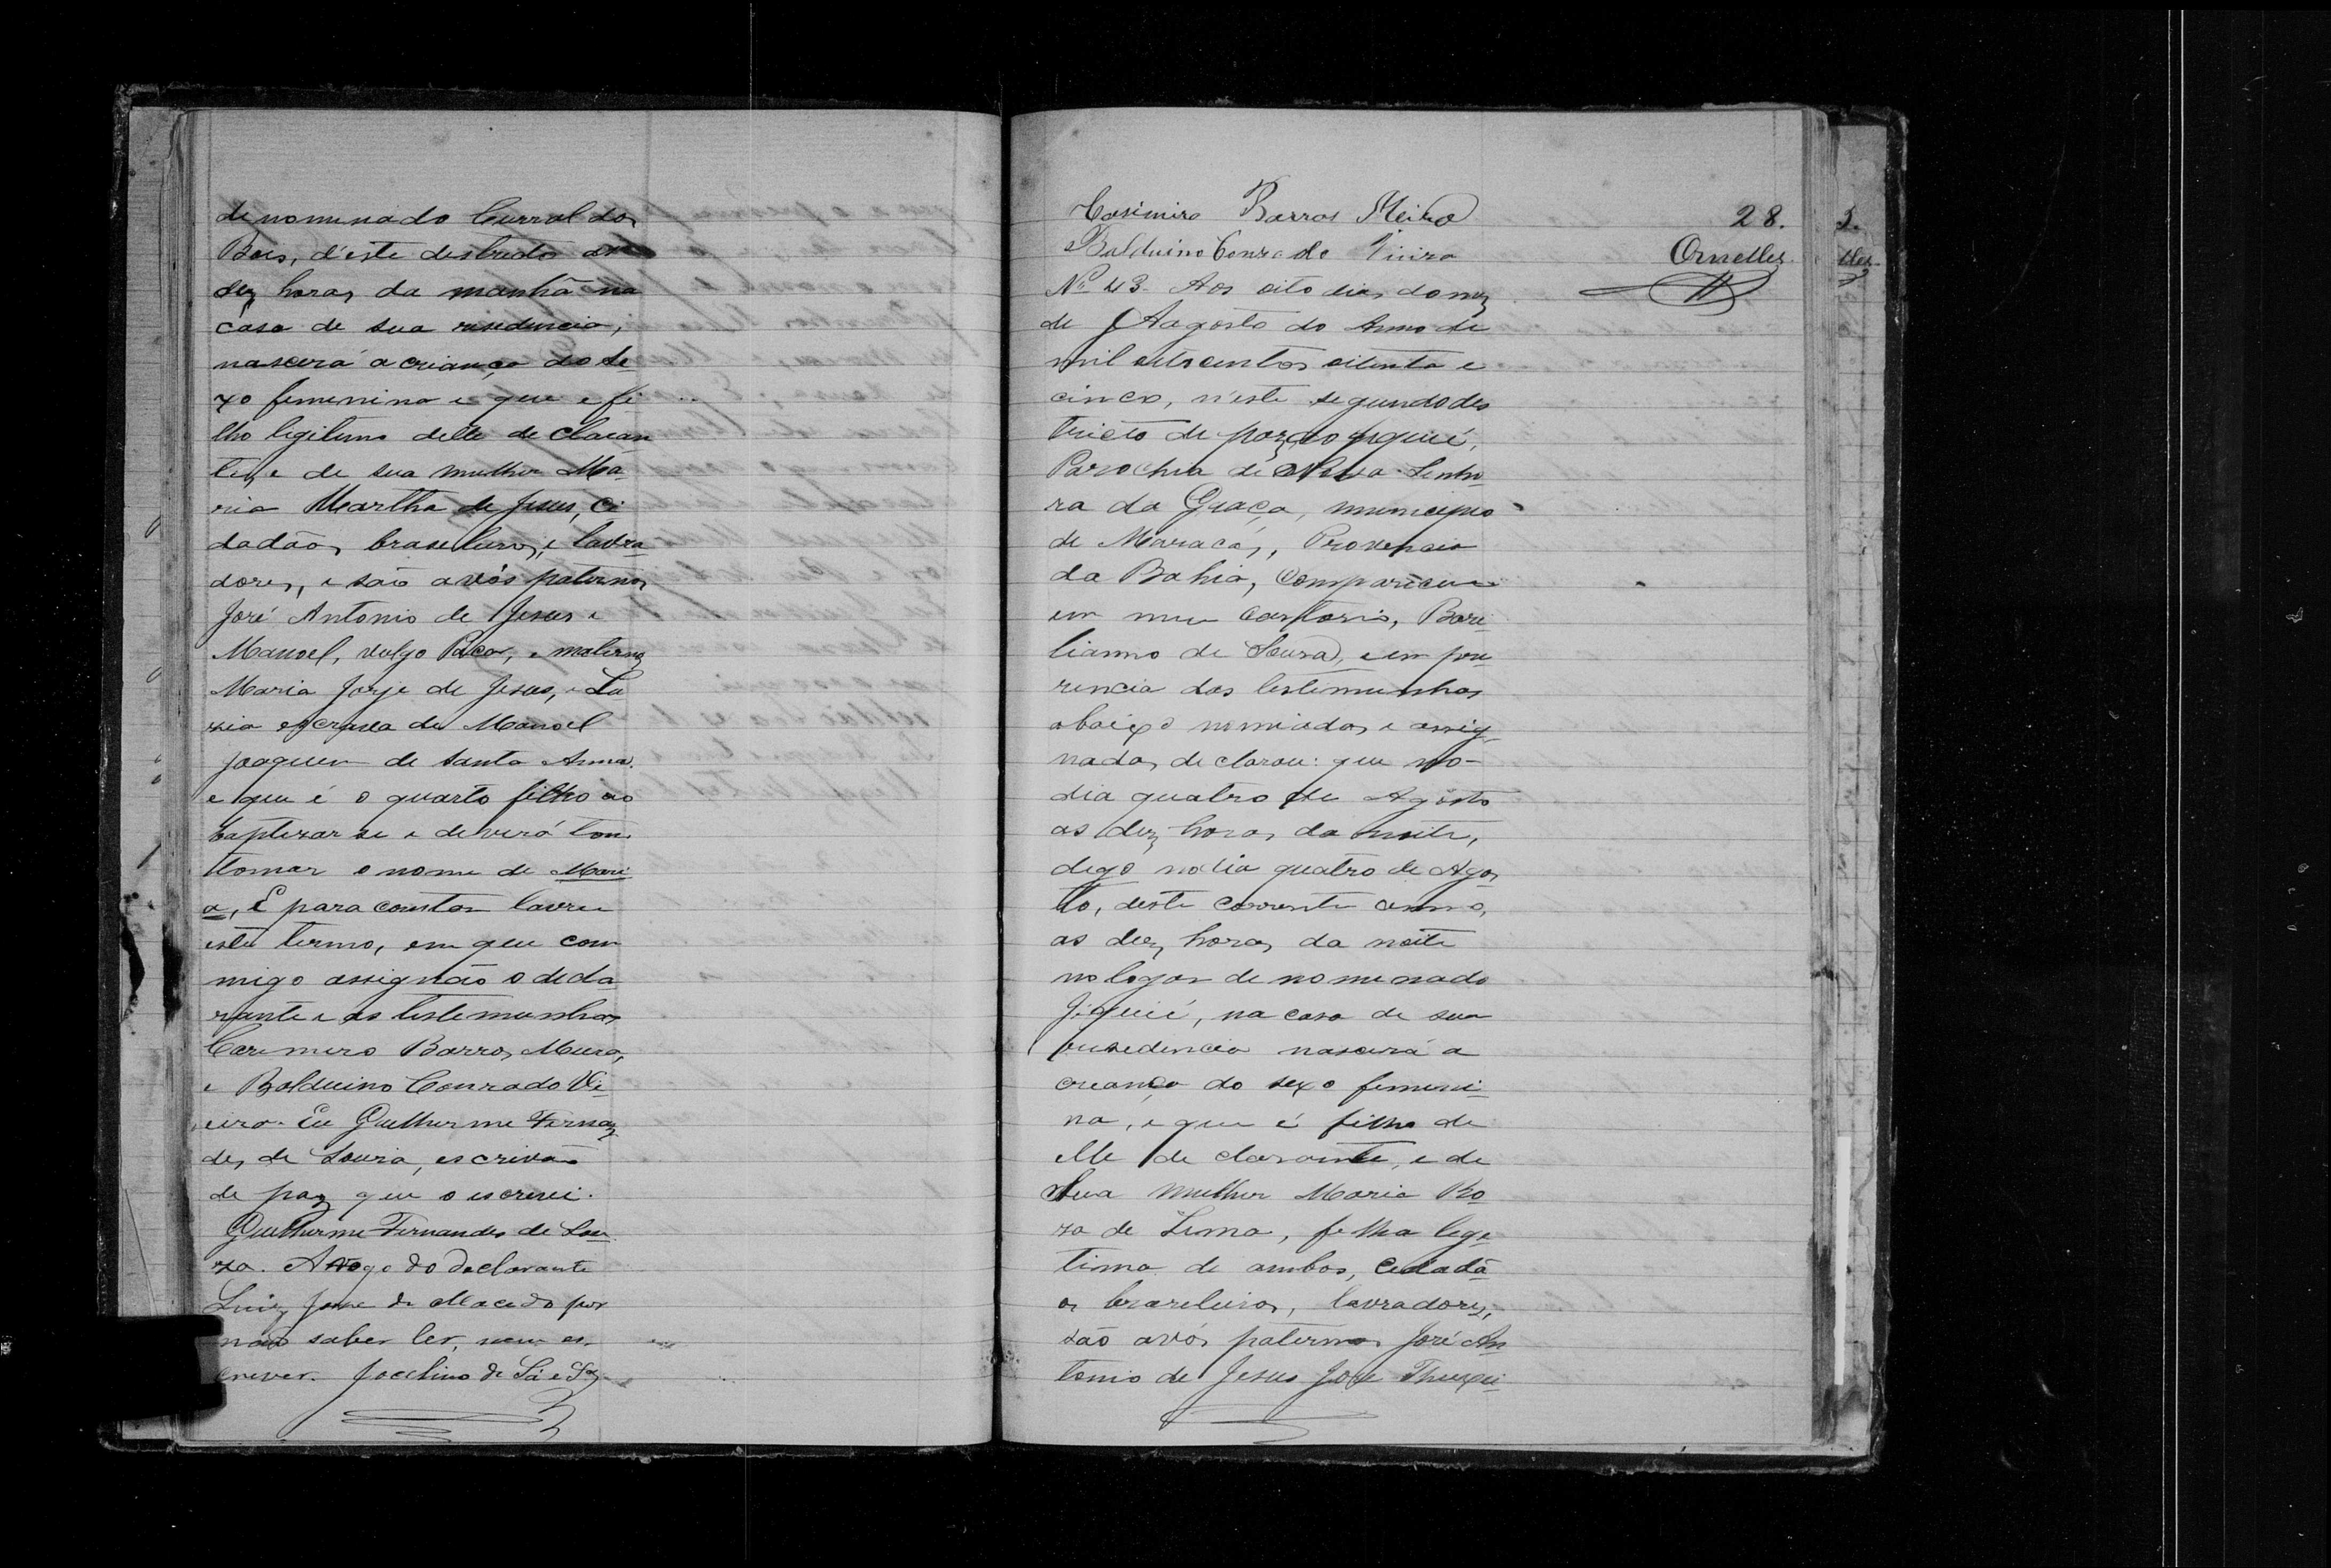 denominado Curral dos
Bois, d'este destricto as
dez horas da manhã na
casa de sua risedencia,
nascera a criança do se
xo femenino e que e fi
lho legitimo delle declaran
te, e de sua mulher Ma
ria Martha de Jesus, Ci
dadãos brasileiros, e lavra
dores, e são avós paternos
José Antonio de Jesus e
Manoel, vulgo Paca, e maternos
Maria Jorje de Jesus, e Lu
zia escrava de Manoel
Joaquim de Santa Anna.
e que é o quarto filho ao
baptizar se e deverá tom
tomar o nome de Mari
a, E para constar lavrei
este termo, em que com
migo assignão o decla
rante e as testemunhas
Casimero Barros Meira,
e Balduino Conrado Vi
eira. Eu Guilherme Fernan
des de Souza, escrivão
de paz que o escrevi.
Guilherme Fernandes de Sou
za. A rogo do declarante
Luiz José de Macedo por
não saber ler, nem es
crever. Jocelino de Sá e Sz
Casimiro Barros Meira
Balduino Conrado Vieira
28.
Ornelles
Nº 43. Aos oito dias do mez
de Agosto do Anno de
mil oitocentos oitenta e
cinco, n'este segundo des
tricto de paz do Jiquié,
Parochia de Nossa Senho
ra da Graça, municipio
de Maracás, Provencia
da Bahia, Compareceu
em meu cartorio,
lianno de Souza, e em pre
rencia das testimunhas
abaixo nomiadas e assig
nadas, declarou: que no
dia quatro de Agosto
as dez horas da noite,
digo no dia quatro de Agos
to, deste corrente anno,
as dez horas da noite
no logar denomenado
Jiquié, na casa de sua
resedencia nascerá a
creança do sexo femeni
na, e que é filha de
elle declarante, e de
Sua mulher Maria Ro
za de Lima, filha lege
tima de ambos, Cidadã
os brazileiros, lavradores,
são avós paternos José An
tonio de Jesus José